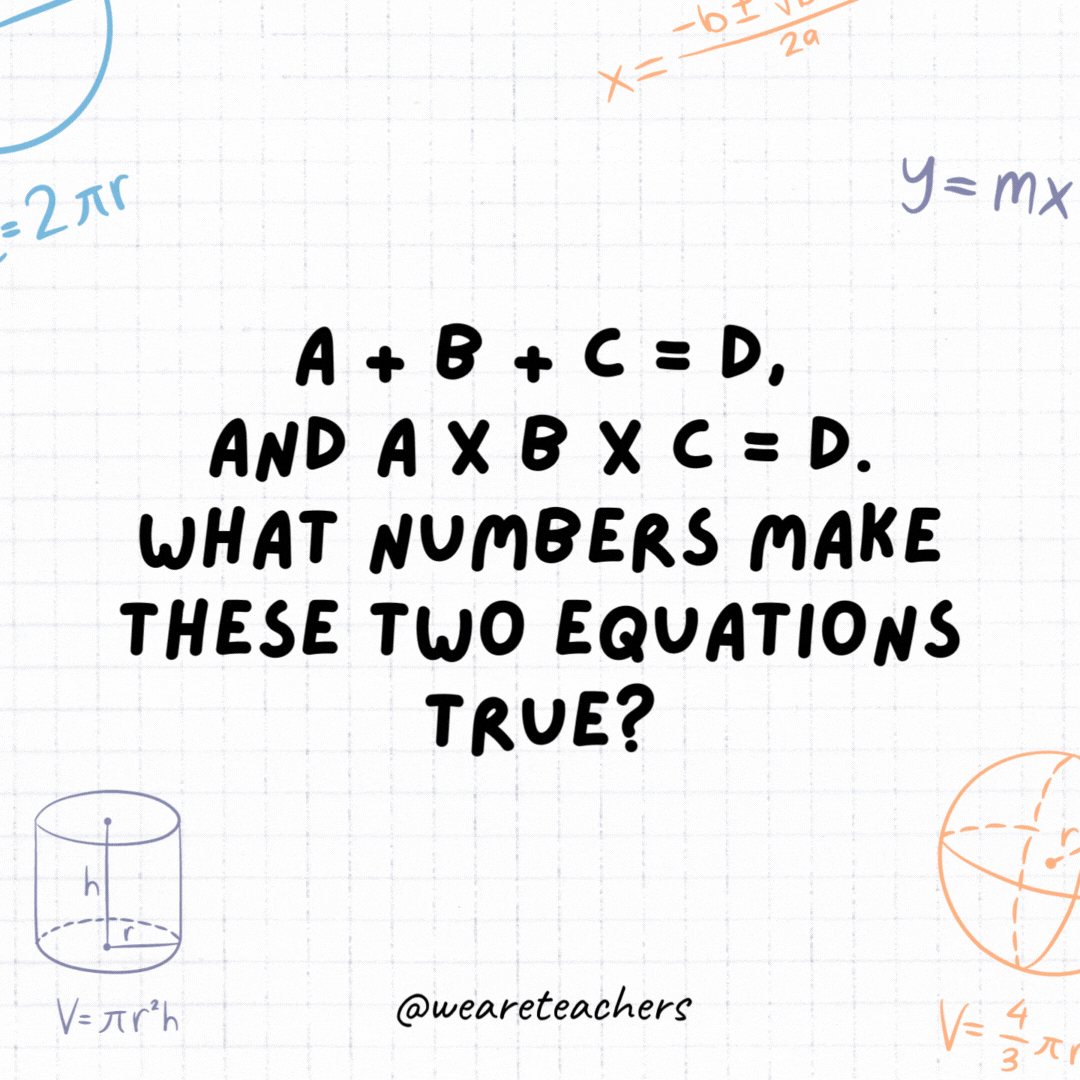 x = -b ± √b / 2a
= 2πr
y = mx
A + B + C = D,
AND A X B X C = D.
WHAT NUMBERS MAKE
THESE TWO EQUATIONS
TRUE?
h
r
r
V = πr²h
@weareteachers
V = 4/3 πr